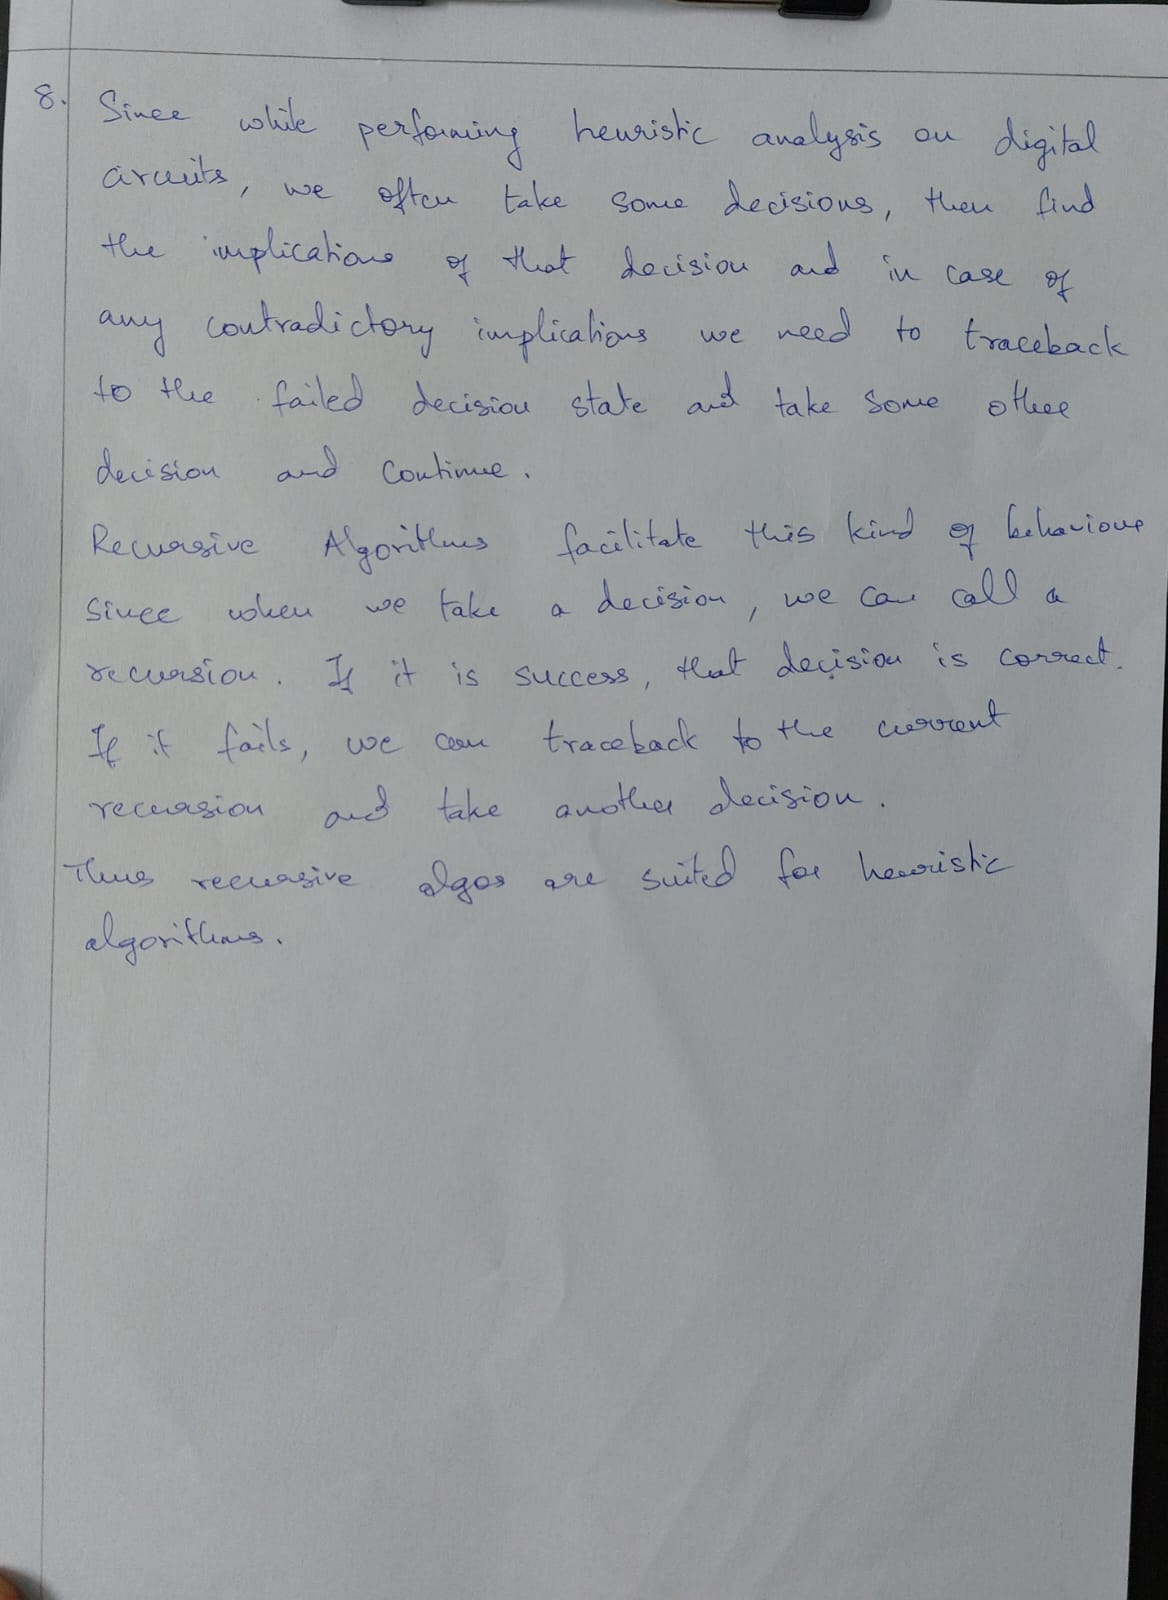 8. Since while performing heuristic analysis on digital
circuits, we often take some decisions, then find
the implications of that decision and in case of
any contradictory implications we need to traceback
to the failed decision state and take some other
decision and continue.
Recursive Algorithms facilitate this kind of behaviour
since when we take a decision, we can call a
recursion. If it is success, that decision is correct.
If it fails, we can traceback to the current
recursion and take another decision.
Thus recursive algos are suited for heuristic
algorithms.